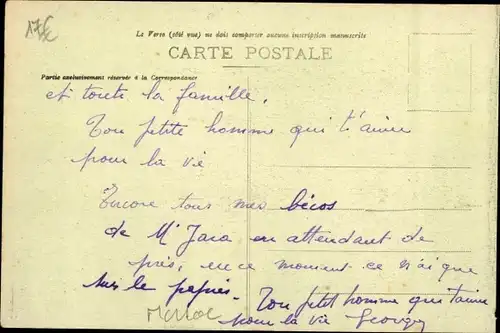 17€
Le Verso (côté vue) ne doit comporter aucune inscription manuscrite
CARTE POSTALE
Partie exclusivement réservée à la Correspondance
et toute la famille.
Ton petite homme qui t'aime
pour la vie
Encore tous mes bécos
de Mr Jara en attendant de
près, en ce moment ce n'ai que
sur le papier. Ton petit homme qui t'aime
pour la vie Georges